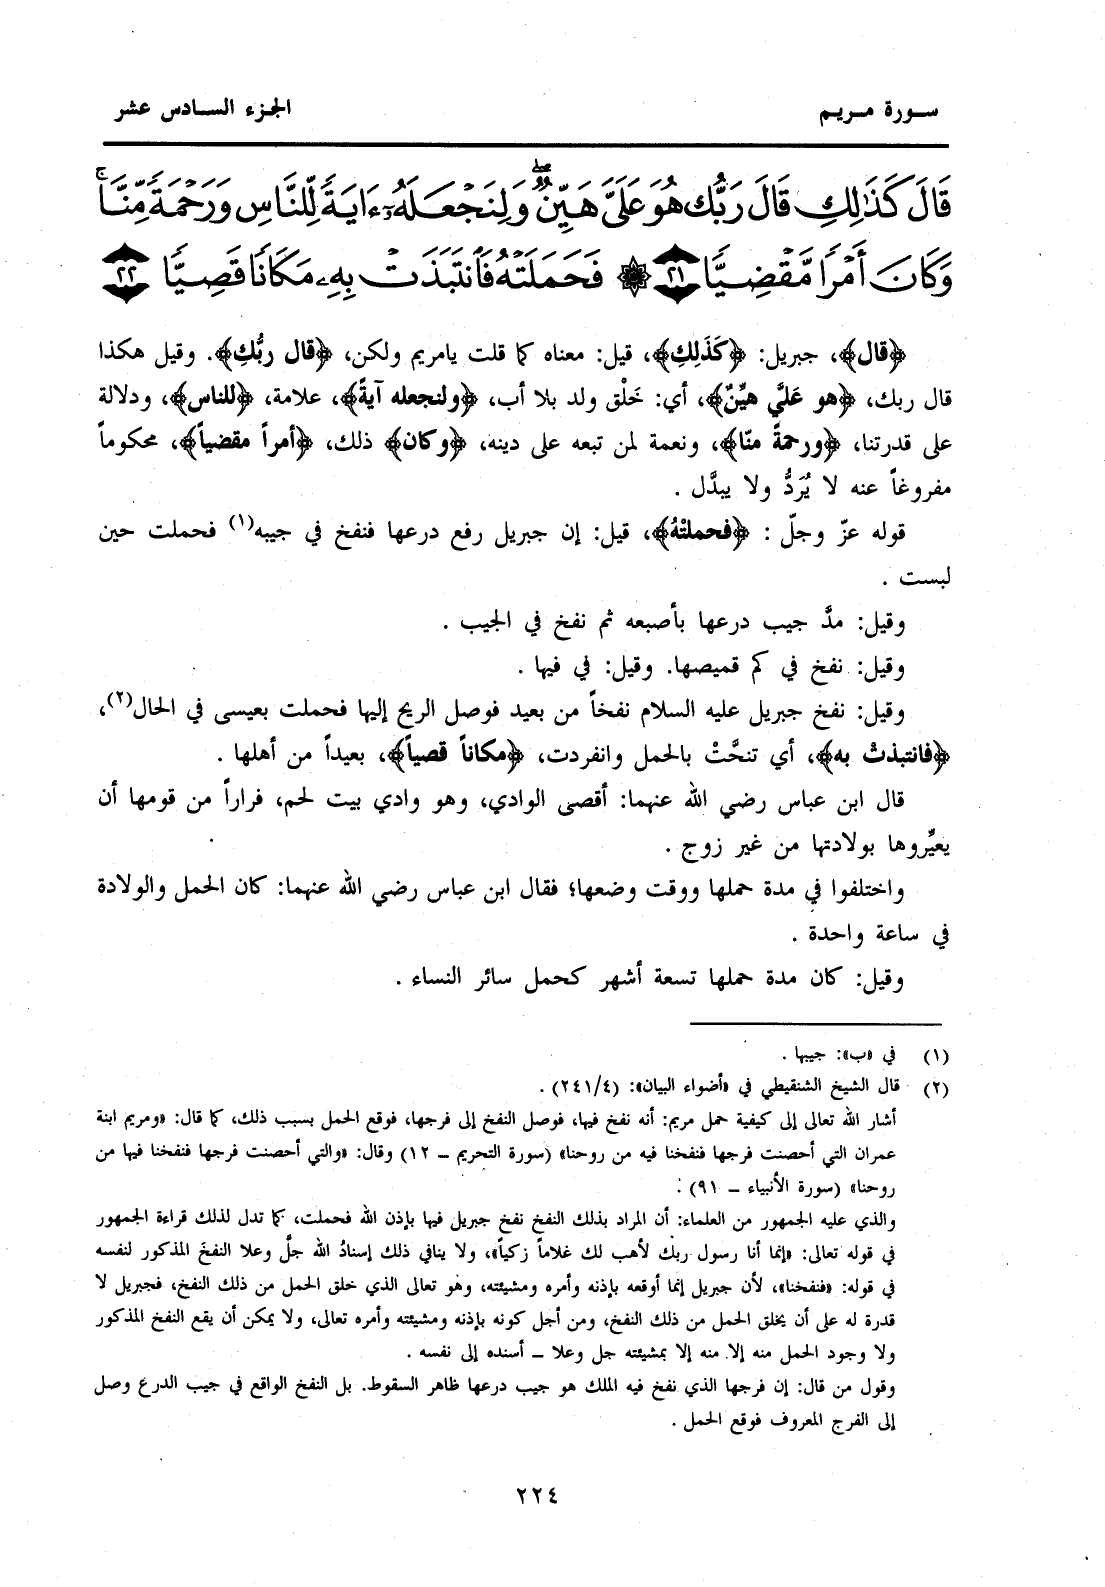 سورة مريم
الجزء السادس عشر
قَالَ كَذَٰلِكِ قَالَ رَبُّكِ هُوَ عَلَىَّ هَيِّنٌۖ وَلِنَجْعَلَهُۥٓ ءَايَةً لِّلنَّاسِ وَرَحْمَةً مِّنَّاۚ
وَكَانَ أَمْرًا مَّقْضِيًّا ٢١ ۞ فَحَمَلَتْهُ فَٱنتَبَذَتْ بِهِۦ مَكَانًا قَصِيًّا ٢٢
﴿قال﴾، جبريل: ﴿كَذَلِكِ﴾، قيل: معناه كما قلت يامريم ولكن، ﴿قال ربُّكِ﴾. وقيل هكذا
قال ربك، ﴿هو عَلَيَّ هيِّنٌ﴾، أي: خَلْق ولد بلا أب، ﴿ولنجعله آيةً﴾، علامة، ﴿للناس﴾، ودلالة
على قدرتنا، ﴿ورحمةً منّا﴾، ونعمة لمن تبعه على دينه، ﴿وكان﴾ ذلك، ﴿أمراً مقضياً﴾، محكوماً
مفروغاً عنه لا يُرَدُّ ولا يبدَّل .
قوله عزّ وجلّ : ﴿فحملتْهُ﴾، قيل: إن جبريل رفع درعها فنفخ في جيبه(١) فحملت حين
لبست .
وقيل: مدَّ جيب درعها بأصبعه ثم نفخ في الجيب .
وقيل: نفخ في كم قميصها. وقيل: في فيها .
وقيل: نفخ جبريل عليه السلام نفخاً من بعيد فوصل الريح إليها فحملت بعيسى في الحال(٢)،
﴿فانتبذتْ به﴾، أي تنحَّتْ بالحمل وانفردت، ﴿مكاناً قصياً﴾، بعيداً من أهلها .
قال ابن عباس رضي الله عنهما: أقصى الوادي، وهو وادي بيت لحم، فراراً من قومها أن
يعيِّروها بولادتها من غير زوج .
واختلفوا في مدة حملها ووقت وضعها؛ فقال ابن عباس رضي الله عنهما: كان الحمل والولادة
في ساعة واحدة .
وقيل: كان مدة حملها تسعة أشهر كحمل سائر النساء .
(١) في «ب»: جيبها .
(٢) قال الشيخ الشنقيطي في «أضواء البيان»: (٢٤١/٤) .
أشار الله تعالى إلى كيفية حمل مريم: أنه نفخ فيها، فوصل النفخ إلى فرجها، فوقع الحمل بسبب ذلك، كما قال: «ومريم ابنة
عمران التي أحصنت فرجها فنفخنا فيه من روحنا» (سورة التحريم ــ ١٢) وقال: «والتي أحصنت فرجها فنفخنا فيها من
روحنا» (سورة الأنبياء ــ ٩١) .
والذي عليه الجمهور من العلماء: أن المراد بذلك النفخ نفخ جبريل فيها بإذن الله فحملت، كما تدل لذلك قراءة الجمهور
في قوله تعالى: «إنما أنا رسول ربك لأهب لك غلاماً زكياً»، ولا ينافي ذلك إسنادُ الله جلَّ وعلا النفخَ المذكور لنفسه
في قوله: «فنفخنا»، لأن جبريل إنما أوقعه بإذنه وأمره ومشيئته، وهو تعالى الذي خلق الحمل من ذلك النفخ، فجبريل لا
قدرة له على أن يخلق الحمل من ذلك النفخ، ومن أجل كونه بإذنه ومشيئته وأمره تعالى، ولا يمكن أن يقع النفخ المذكور
ولا وجود الحمل منه إلا منه إلا بمشيئته جل وعلا ــ أسنده إلى نفسه .
وقول من قال: إن فرجها الذي نفخ فيه الملك هو جيب درعها ظاهر السقوط. بل النفخ الواقع في جيب الدرع وصل
إلى الفرج المعروف فوقع الحمل .
٢٢٤